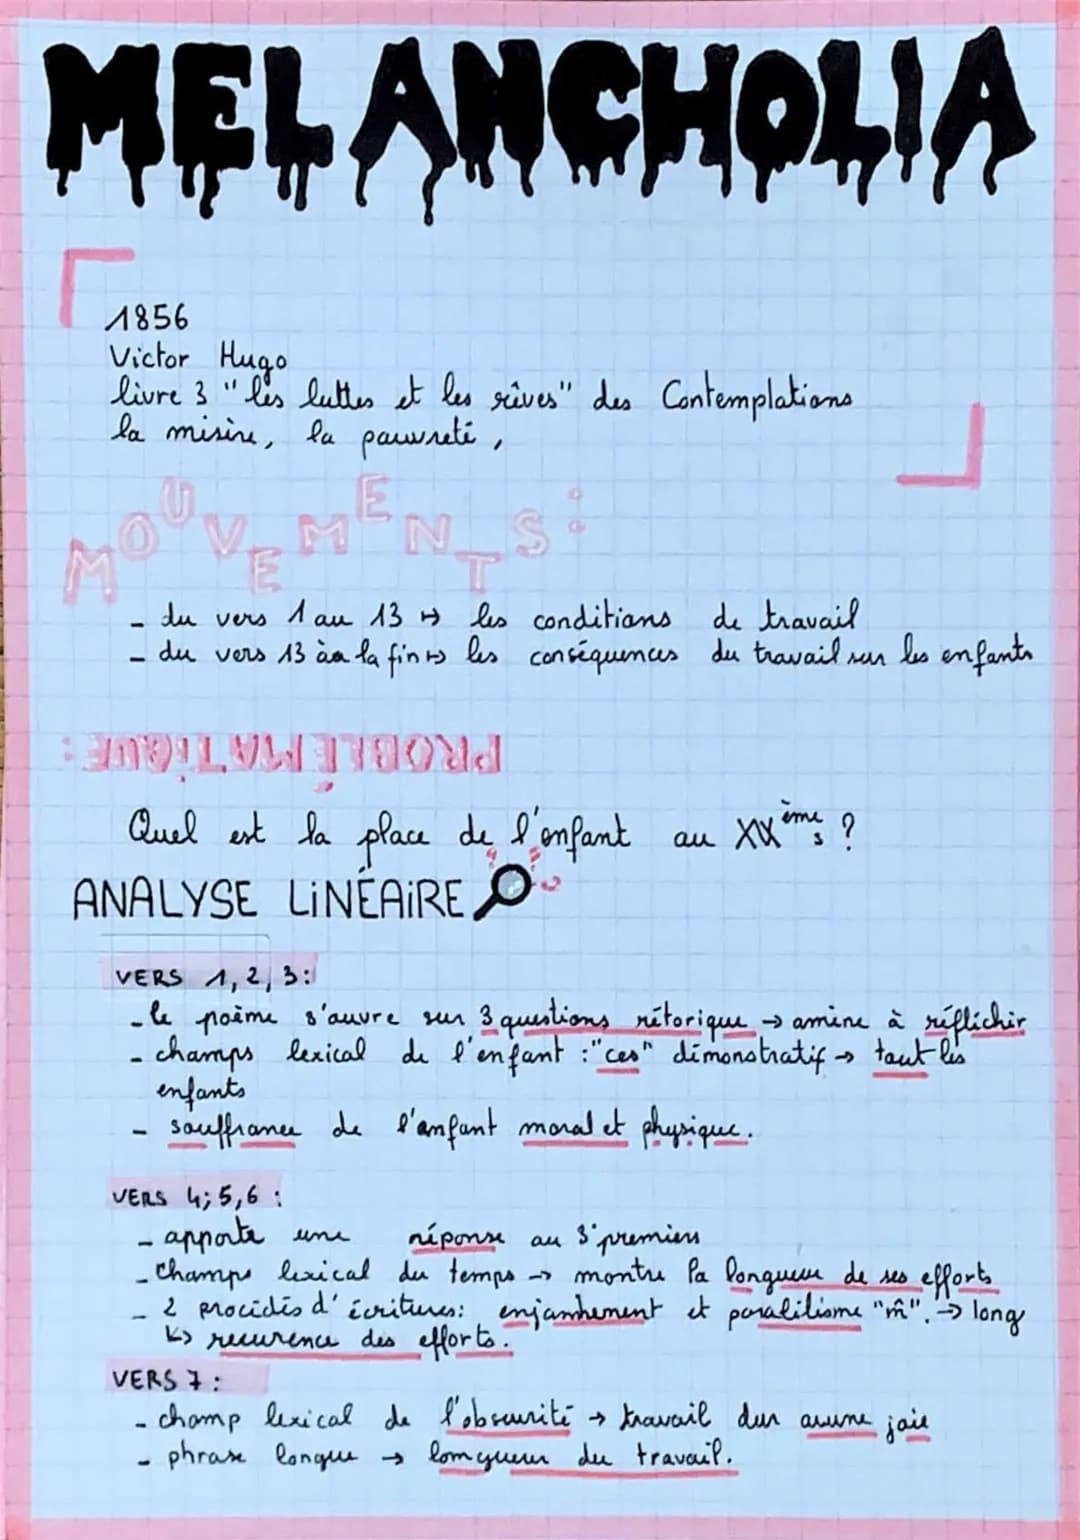 MELANCHOLIA
1856
Victor Hugo
livre 3 "les luttes et les rêves" des Contemplations
la misère, la pauvreté,
MOUVEMENTS:
- du vers 1 au 13 ↦ les conditions de travail
- du vers 13 à la fin ↦ les conséquences du travail sur les enfants
PROBLÉMATIQUE:
Quel est la place de l'enfant au XIXème s ?
ANALYSE LiNÉAiRE
VERS 1, 2, 3:
- le poème s'ouvre sur 3 questions rétorique → amène à réfléchir
- champs lexical de l'enfant : "ces" démonstratif → tout les
enfants
- souffrance de l'enfant moral et physique.
VERS 4; 5, 6 :
- apporte une réponse au 3 premiers
- champs lexical du temps → montre la longueur de ses efforts
- 2 procédés d'écritures: enjambement et paralélisme "m̂". → long
↳ recurence des efforts.
VERS 7 :
- champ lexical de l'obscurité → travail dur aucune joie
- phrase longue → longueur du travail.